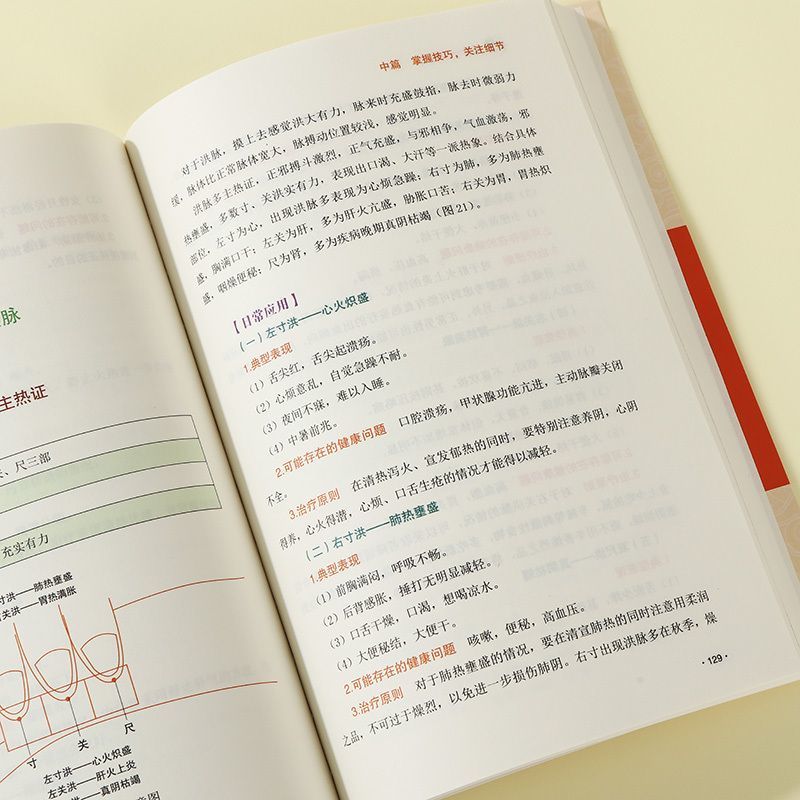 脉
主热证
、尺三部
充实有力
寸洪——肺热壅盛
关洪——胃热满胀
寸 关 尺
左寸洪——心火炽盛
左关洪——肝火上炎
尺洪——真阴枯竭
意图
中篇 掌握技巧，关注细节
对于洪脉，摸上去感觉洪大有力，脉来时充盛鼓指，脉去时微弱力
缓，脉体比正常脉体宽大，脉搏动位置较浅，感觉明显。
洪脉多主热证，正邪搏斗激烈，正气充盛，与邪相争，气血激荡，邪
热壅盛，多数寸、关洪实有力，表现出口渴、大汗等一派热象。结合具体
部位，左寸为心，出现洪脉多表现为心烦急躁；右寸为肺，多为肺热壅
盛，胸满口干；左关为肝，多为肝火亢盛，胁胀口苦；右关为胃，胃热炽
盛，咽燥便秘；尺为肾，多为疾病晚期真阴枯竭（图21）。
【日常应用】
（一）左寸洪——心火炽盛
1.典型表现
（1）舌尖红，舌尖起溃疡。
（2）心烦意乱，自觉急躁不耐。
（3）夜间不寐，难以入睡。
（4）中暑前兆。
2.可能存在的健康问题 口腔溃疡，甲状腺功能亢进，主动脉瓣关闭
不全。
3.治疗原则 在清热泻火、宣发郁热的同时，要特别注意养阴，心阴
得养，心火得潜，心烦、口舌生疮的情况才能得以减轻。
（二）右寸洪——肺热壅盛
1.典型表现
（1）前胸满闷，呼吸不畅。
（2）后背感胀，捶打无明显减轻。
（3）口舌干燥，口渴，想喝凉水。
（4）大便秘结，大便干。
2.可能存在的健康问题 咳嗽，便秘，高血压。
3.治疗原则 对于肺热壅盛的情况，要在清宣肺热的同时注意用柔润
之品，不可过于燥烈，以免进一步损伤肺阴。右寸出现洪脉多在秋季，燥
·129·